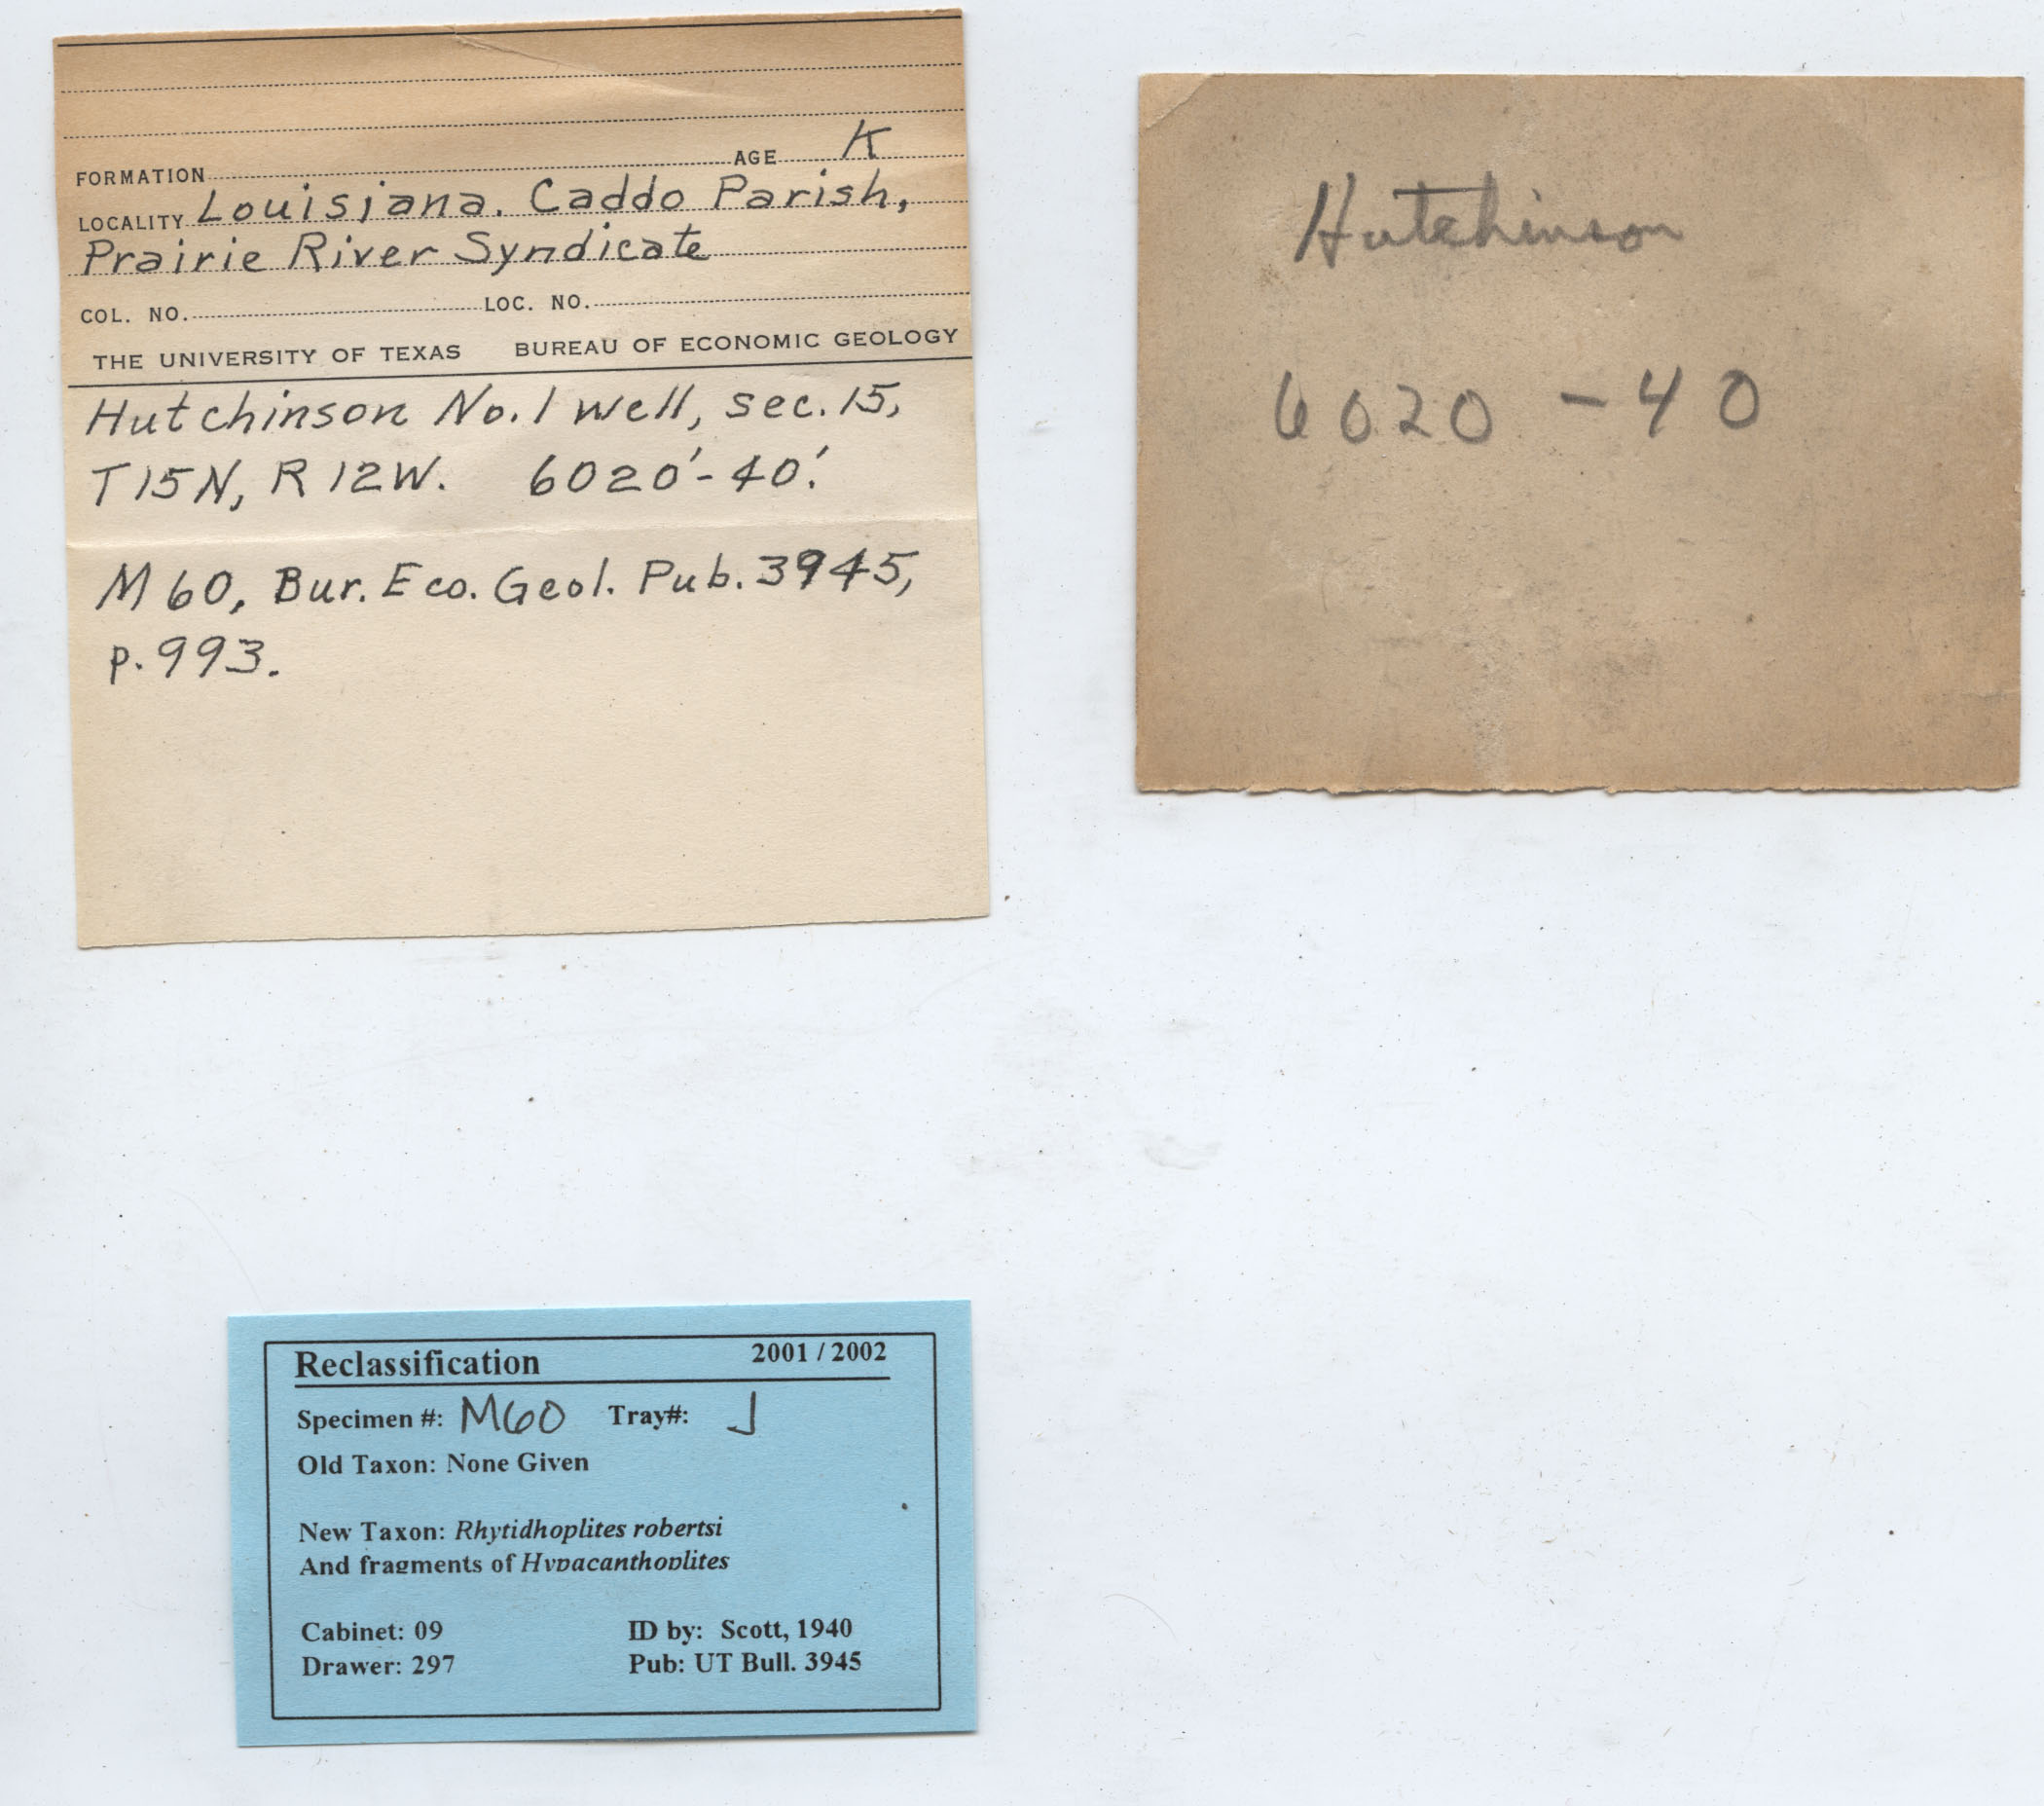 FORMATION AGE K
LOCALITY Louisiana. Caddo Parish,
Prairie River Syndicate
COL. NO. LOC. NO.
THE UNIVERSITY OF TEXAS BUREAU OF ECONOMIC GEOLOGY
Hutchinson No. 1 well, sec. 15,
T15N, R12W. 6020'-40'.
M60, Bur. Eco. Geol. Pub. 3945,
p. 993.
Hutchinson
6020 - 40
Reclassification 2001 / 2002
Specimen #: M60 Tray#: J
Old Taxon: None Given
New Taxon: Rhytidhoplites robertsi
And fragments of Hypacanthoplites
Cabinet: 09 ID by: Scott, 1940
Drawer: 297 Pub: UT Bull. 3945